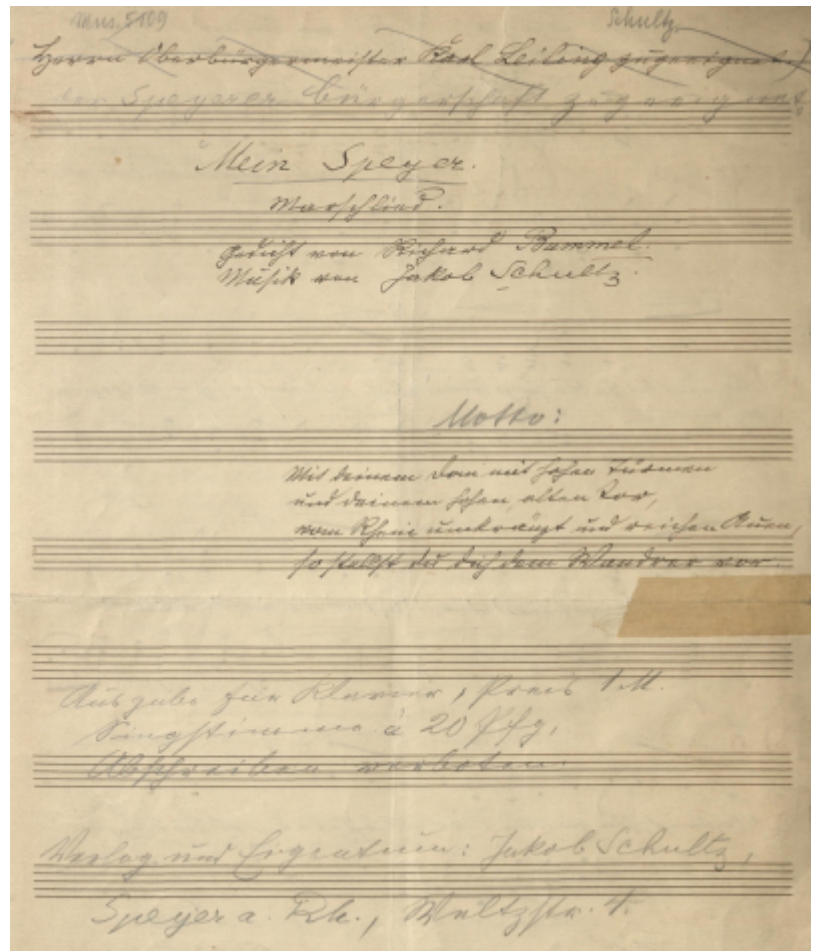 Mus. 5109 Schultz.
Herrn Oberbürgermeister Karl Leiling zugeeignet.)
der Speyerer Bürgerschaft zugeeignet.
Mein Speyer.
Marschlied.
Gedicht von Richard Bummel.
Musik von Jakob Schultz.
Motto:
Mit deinem Dom mit hohen Türmen
und deinem hohen, alten Tor,
vom Rhein umkränzt und reichen Auen,
so stellst du dich dem Wandrer vor.
Ausgabe für Klavier, Preis 1 M.
Singstimme à 20 Pfg,
Abschreiben verboten.
Verlag und Eigentum: Jakob Schultz,
Speyer a. Rh., Weltzstr. 4.